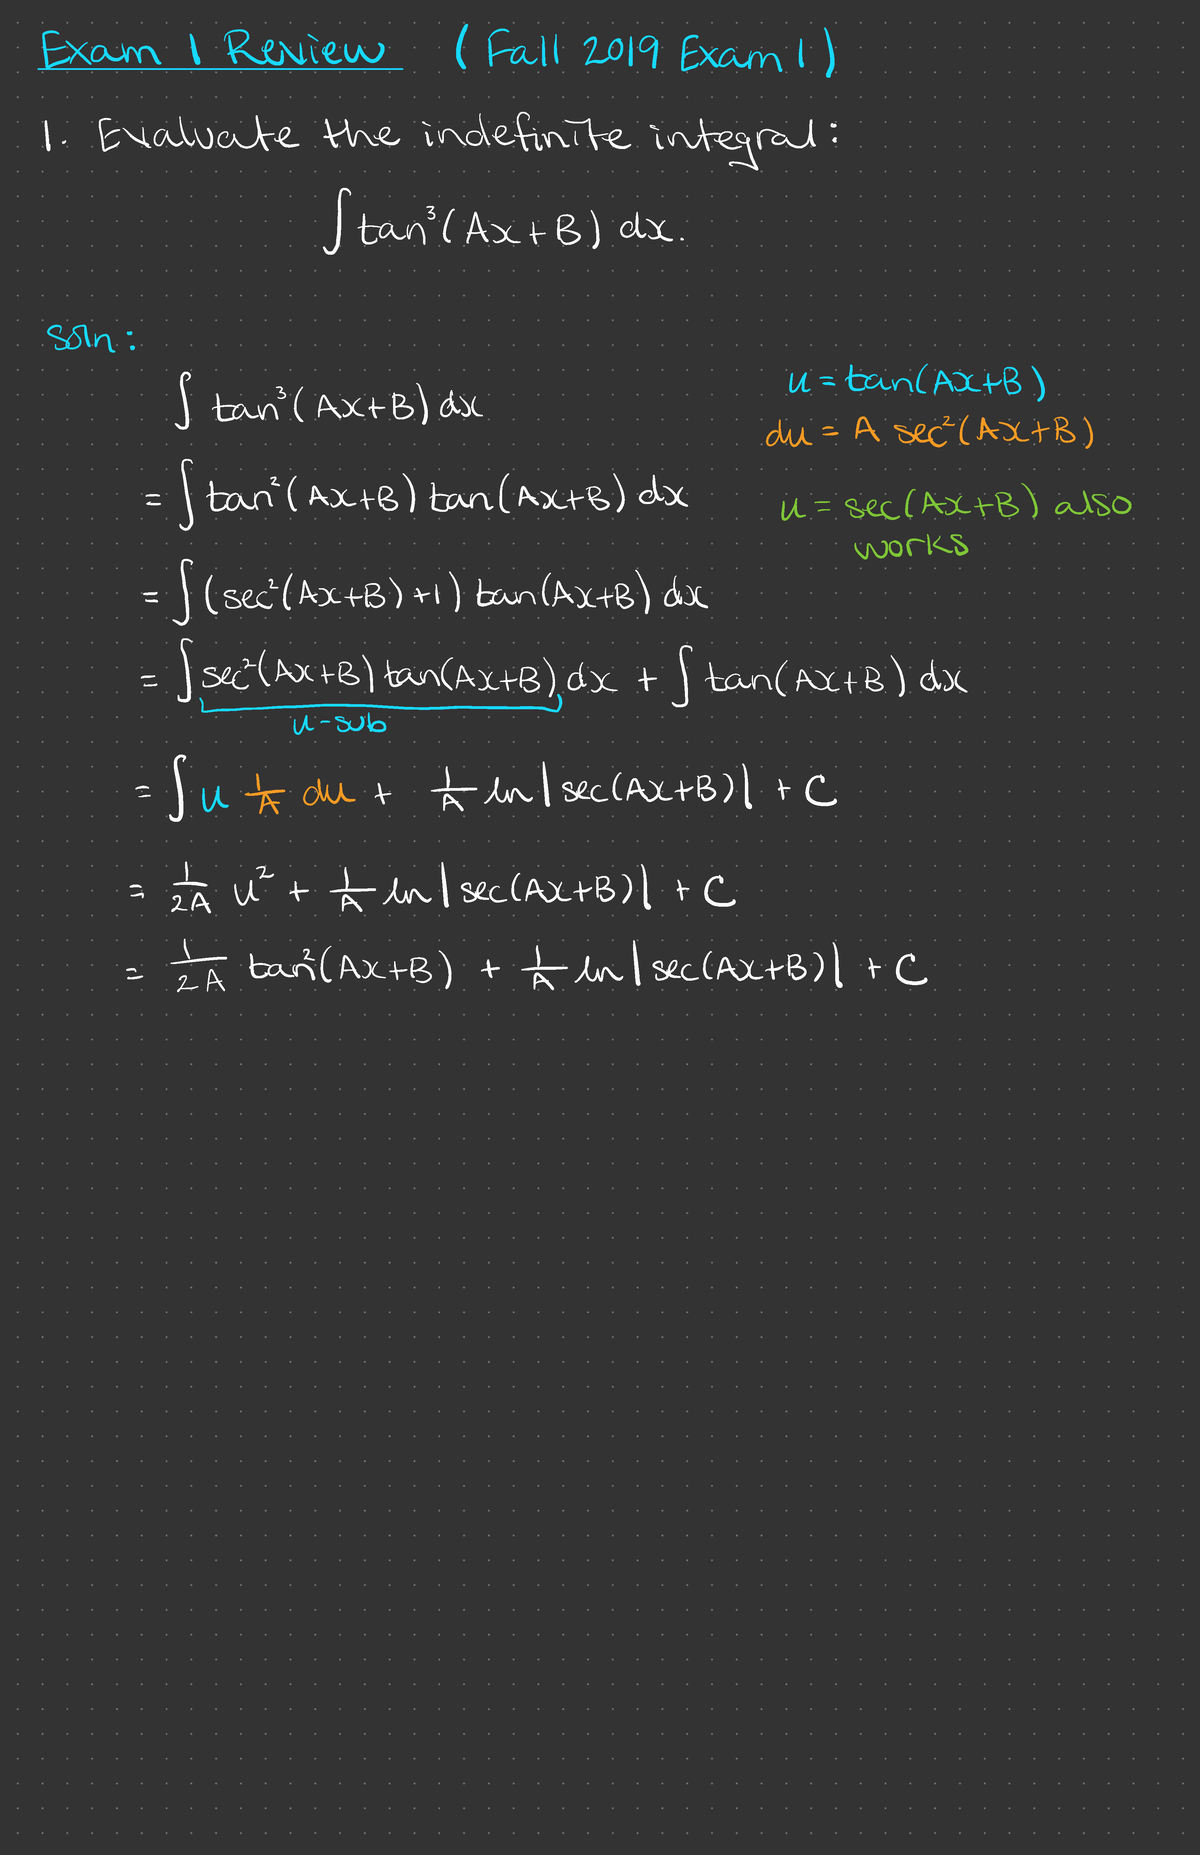 Exam 1 Review (Fall 2019 Exam 1)
1. Evaluate the indefinite integral:
∫ tan³(Ax+B) dx.
Soln:
∫ tan³(Ax+B) dx
u = tan(Ax+B)
du = A sec²(Ax+B)
= ∫ tan²(Ax+B) tan(Ax+B) dx
u = sec(Ax+B) also
works
= ∫ (sec²(Ax+B) +1) tan(Ax+B) dx
= ∫ sec²(Ax+B) tan(Ax+B) dx + ∫ tan(Ax+B) dx
u-sub
= ∫ u 1/A du + 1/A ln|sec(Ax+B)| + C
= 1/2A u² + 1/A ln|sec(Ax+B)| + C
= 1/2A tan²(Ax+B) + 1/A ln|sec(Ax+B)| + C